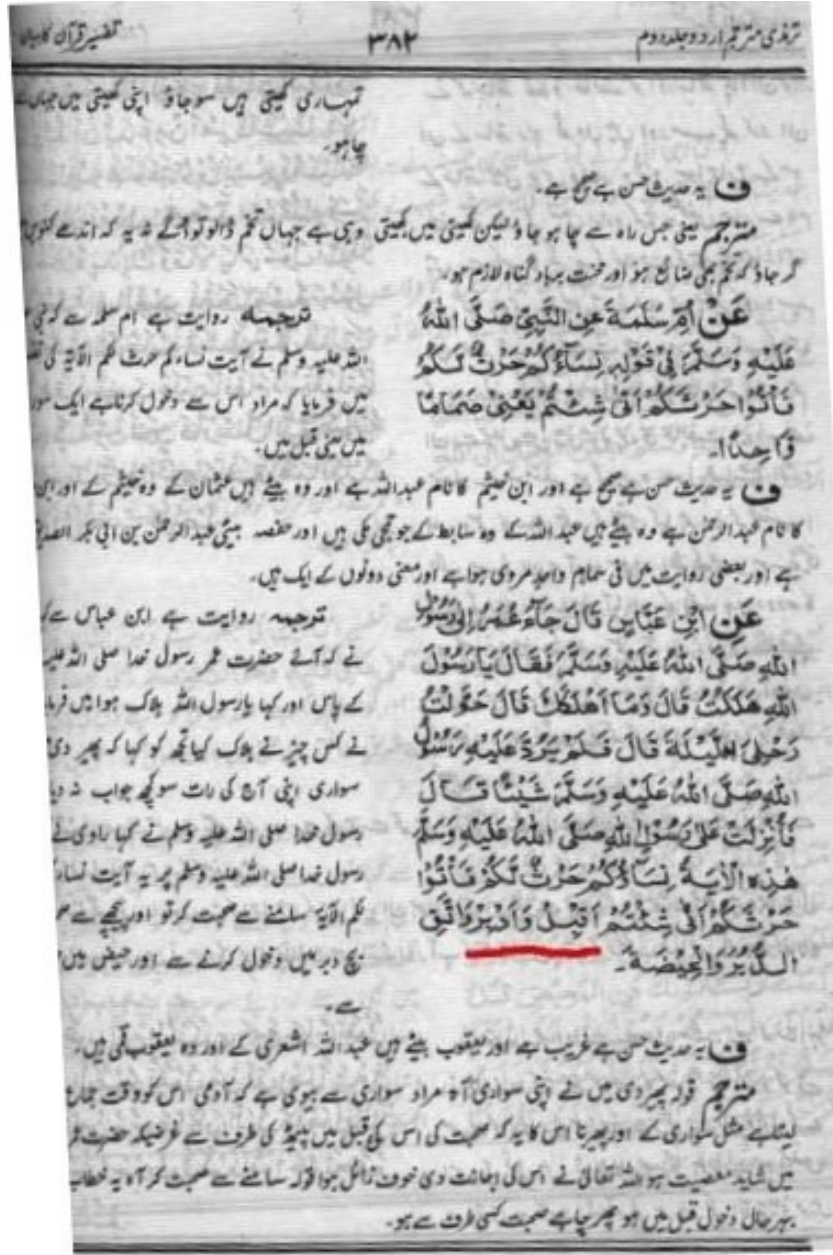 ترمذی مترجم اردو جلد دوم ۳۸۲ تفسیر قرآن کا بیان
تمہاری کھیتی ہیں سو جاؤ اپنی کھیتی میں جہاں سے
چاہو۔
ف یہ حدیث حسن ہے صحیح ہے۔
مترجم یعنی جس راہ سے چاہو جاؤ لیکن کھیتی میں کھیتی وہی ہے جہاں تخم ڈالو تو اگے نہ یہ کہ اندھے کنویں
گر جاؤ کہ تخم بھی ضائع ہو اور محنت برباد گناہ لازم ہو۔
عَنْ اُمِّ سَلَمَةَ عَنِ النَّبِيِّ صَلَّى اللهُ
عَلَيْهِ وَسَلَّمَ فِيْ قَوْلِهِ نِسَاؤُكُمْ حَرْثٌ لَّكُمْ
فَأْتُوْا حَرْثَكُمْ اَنّٰى شِئْتُمْ يَعْنِيْ صِمَامًا
وَّاحِدًا۔
ترجمہ روایت ہے ام سلمہ سے کہ نبی
اللہ علیہ وسلم نے آیت نساءکم حرث لکم الآیۃ کی
میں فرمایا کہ مراد اس سے دخول کرنا ہے ایک
میں یعنی قبل میں۔
ف یہ حدیث حسن ہے صحیح ہے اور ابن خیثم کا نام عبداللہ ہے اور وہ بیٹے ہیں عثمان کے وہ خیثم کے اور ابن
کا نام عبدالرحمن ہے وہ بیٹے ہیں عبداللہ کے وہ سابط کے جو جمحی مکی ہیں اور حفصہ بیٹی عبدالرحمن بن ابی بکر الصدیق
ہے اور بعضی روایت میں فی سمام واحد مروی ہوا ہے اور معنی دونوں کے ایک ہیں۔
عَنِ ابْنِ عَبَّاسٍ قَالَ جَآءَ عُمَرُ اِلٰى رَسُوْلِ
اللهِ صَلَّى اللهُ عَلَيْهِ وَسَلَّمَ فَقَالَ يَا رَسُوْلَ
اللهِ هَلَكْتُ قَالَ وَمَا اَهْلَكَكَ قَالَ حَوَّلْتُ
رَحْلِيَ اللَّيْلَةَ قَالَ فَلَمْ يَرُدَّ عَلَيْهِ رَسُوْلُ
اللهِ صَلَّى اللهُ عَلَيْهِ وَسَلَّمَ شَيْئًا قَالَ
فَاُنْزِلَتْ عَلٰى رَسُوْلِ اللهِ صَلَّى اللهُ عَلَيْهِ وَسَلَّمَ
هٰذِهِ الْاٰيَةُ نِسَآؤُكُمْ حَرْثٌ لَّكُمْ فَأْتُوْا
حَرْثَكُمْ اَنّٰى شِئْتُمْ اَقْبِلْ وَاَدْبِرْ وَاتَّقِ
الدُّبُرَ وَالْحِيْضَةَ۔
ترجمہ روایت ہے ابن عباس سے
نے کہ آئے حضرت عمر رسول خدا صلی اللہ علیہ
کے پاس اور کہا یارسول اللہ ہلاک ہوا میں
نے کس چیز نے ہلاک کیا تجھ کو کہا کہ پھیر دی
سواری اپنی آج کی رات سو کچھ جواب نہ
رسول خدا صلی اللہ علیہ وسلم نے کہا راوی نے
رسول خدا صلی اللہ علیہ وسلم پر یہ آیت
لکم الآیۃ سامنے سے صحبت کر تو اور پیچھے سے
بچ دبر میں دخول کرنے سے اور حیض میں
سے۔
ف یہ حدیث حسن ہے غریب ہے اور یعقوب بیٹے ہیں عبداللہ اشعری کے اور وہ یعقوب قمی ہیں۔
مترجم قولہ پھیر دی میں نے اپنی سواری آہ مراد سواری سے بیوی ہے کہ آدمی اس کو وقت جماع
لیتا ہے مثل سواری کے اور پھیرنا اس کا یہ کہ صحبت کی اس کی قبل میں پیٹھ کی طرف سے غرضیکہ حضرت
میں شاید معصیت ہو اللہ تعالیٰ نے اس کی اجازت دی خوف زائل ہوا قولہ سامنے سے صحبت کر آہ یہ خطاب
بہرحال دخول قبل میں ہو پھر چاہے صحبت کسی طرف سے ہو۔